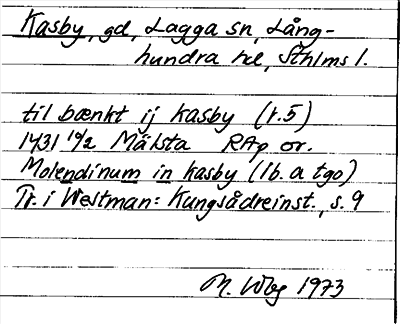 Kasby, gd, Lagga sn, Lång-
hundra hd, Sthlms l.
til bænkt ij kasby (r.5)
1431 10/2 Mälsta RAp or.
Molendinum in kasby (lb. a tgo)
Tr. i Westman: Kungsådreinst., s. 9
M. 1973